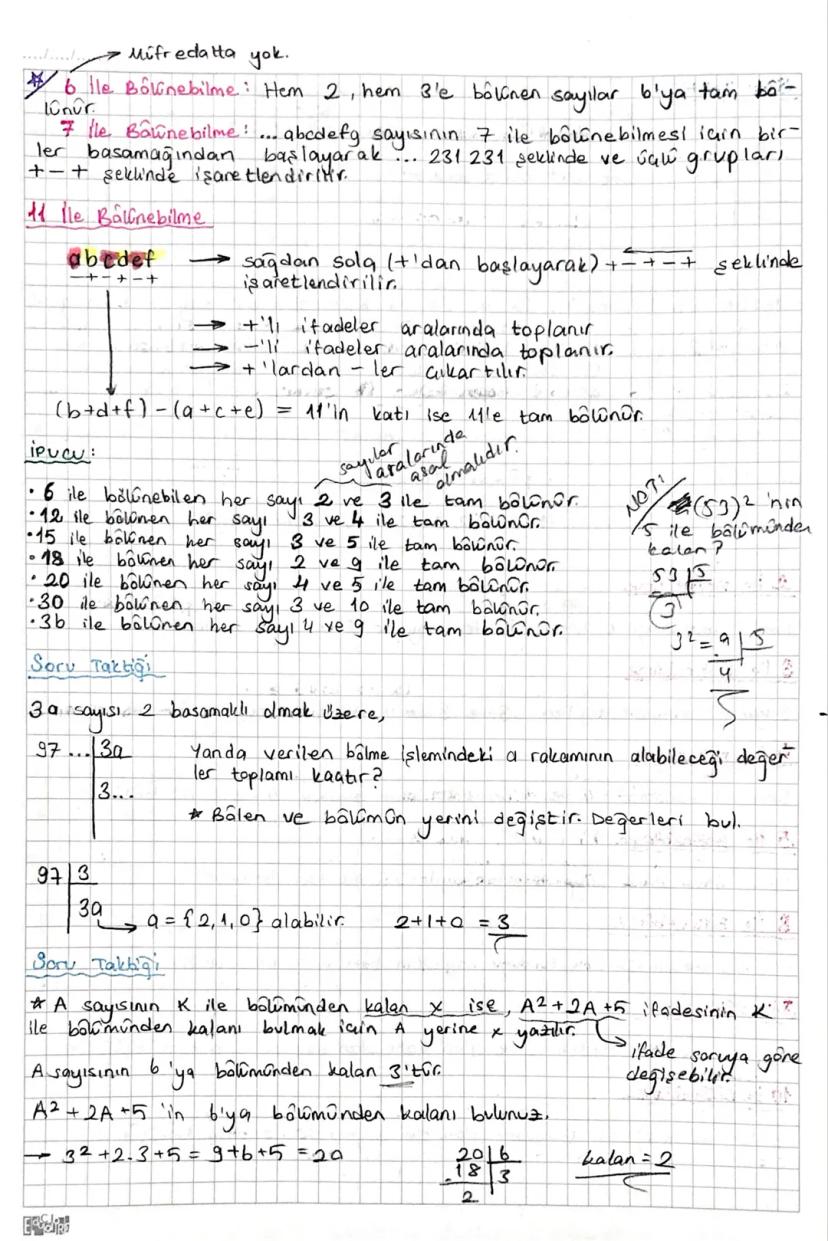 → Müfredatta yok.
6 ile Bölünebilme: Hem 2, hem 3'e bölünen sayılar 6'ya tam bö-
lünür.
7 ile Bölünebilme: ... abcdefg sayısının 7 ile bölünebilmesi için bir-
ler basamağından başlayarak ... 231 231 şeklinde ve üçlü grupları
+ - + şeklinde işaretlendirilir.
11 ile Bölünebilme
abcdef → sağdan sola (+'dan başlayarak) + - + - + şeklinde
- + - + - + işaretlendirilir.
→ +'lı ifadeler aralarında toplanır
→ -'li ifadeler aralarında toplanır.
→ +'lardan - ler çıkartılır.
(b+d+f) - (a+c+e) = 11'in katı ise 11'e tam bölünür.
İpucu:
sayılar aralarında asal olmalıdır.
• 6 ile bölünebilen her sayı 2 ve 3 ile tam bölünür.
• 12 ile bölünen her sayı 3 ve 4 ile tam bölünür.
• 15 ile bölünen her sayı 3 ve 5 ile tam bölünür.
• 18 ile bölünen her sayı 2 ve 9 ile tam bölünür.
• 20 ile bölünen her sayı 4 ve 5 ile tam bölünür.
• 30 ile bölünen her sayı 3 ve 10 ile tam bölünür.
• 36 ile bölünen her sayı 4 ve 9 ile tam bölünür.
NOT:
(53)² 'nin
5 ile bölümünden
kalan?
53 | 5
3
3² = 9 | 5
4
Soru Taktiği
3a sayısı 2 basamaklı olmak üzere,
97 ... | 3a Yanda verilen bölme işlemindeki a rakamının alabileceği değer-
3... ler toplamı kaçtır?
* Bölen ve bölümün yerini değiştir. Değerleri bul.
97 | 3
3a → a = {2,1,0} alabilir. 2+1+0 = 3
Soru Taktiği
* A sayısının K ile bölümünden kalan x ise, A²+2A+5 ifadesinin K
ile bölümünden kalanı bulmak için A yerine x yazılır.
→ ifade soruya göre
değişebilir.
A sayısının 6'ya bölümünden kalan 3'tür.
A²+2A+5 'in 6'ya bölümünden kalanı bulunuz.
→ 3²+2.3+5 = 9+6+5 = 20
20 | 6
-18 | 3
2
kalan = 2